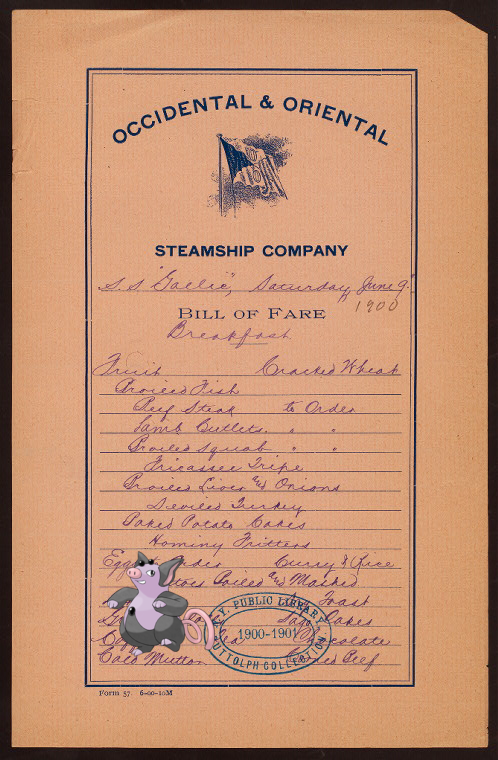 OCCIDENTAL & ORIENTAL
STEAMSHIP COMPANY
S.S "Gaelic", Saturday June 9th
1900
BILL OF FARE
Breakfast
Fruit Cracked Wheat
Broiled Fish
Beef Steak to Order
Lamb Cutlets " "
Broiled Squab " "
Fricassee Tripe
Broiled Liver and Onions
Deviled Turkey
Baked Potato Cakes
Hominy Fritters
Eggs Order Curry & Rice
Boiled and Mashed
Toast
Cakes
Chocolate
Cold Mutton Beef
N.Y. PUBLIC LIBRARY
1900-1901
BUTTOLPH COLLECTION
Form 57 6-00-10M